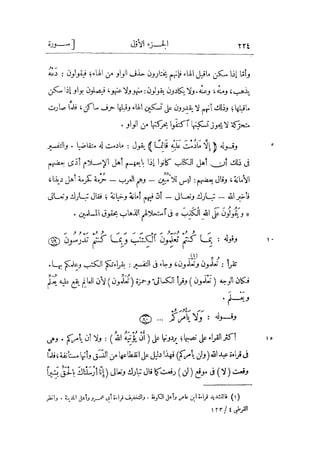 ٢٢٤ الجزء الأول [ سورة
وأمّا إذا سكن ماقبل الهاء فإنهم يختارون حذف الواو من الهاء؛ فيقولون : دَعْهُ
يذهب، ومنْهُ ، وعنْهُ . ولا يكادون يقولون : منهو ولا عنهو، فيصلون بواو إذا سكن
ماقبلها؛ وذلك أنهم لا يقدرون على تسكين الهاء وقبلها حرف ساكن، فلمّا صارت
متحركة لا يجوز تسكينها اكتفوا بحركتها من الواو .
٥ وقوله ﴿ إِلَّا مَا دُمْتَ عَلَيْهِ قَائِمًا ﴾ يقول : مادمت له متقاضيا . والتفسير
فى ذلك أن أهل الكتاب كانوا إذا بايعهم أهل الإسلام أدّى بعضهم
الأمانة، وقال بعضهم : ليس للأميين — وهم العرب — حرمة كحرمة أهل ديننا،
فأخبر الله — تبارك وتعالى — أنّ فيهم أمانة وخيانة ؛ فقال تبارك وتعالى
﴿ وَيَقُولُونَ عَلَى اللهِ الْكَذِبَ ﴾ فى استحلالهم الذهاب بحقوق المسلمين .
١٠ وقوله : بِمَا كُنتُمْ تُعَلِّمُونَ الْكِتَٰبَ وَبِمَا كُنتُمْ تَدْرُسُونَ ﴿٧٩﴾
تقرأ : تُعَلِّمون وتَعْلَمون (١) ، وجاء فى التفسير : بقراءتكم الكتب وعلمكم بها.
فكان الوجه ( تَعْلَمون ) وقرأ الكسائى وحمزة ( تُعَلِّمون ) لأن العالِم يقع عليه يُعَلِّم
ويَعْلَم .
وقوله : وَلَا يَأْمُرَكُمْ ... ﴿٨٠﴾
١٥ أكثر القراء على نصبها؛ يردونها على ( أَن يُؤْتِيَهُ اللهُ ) : ولا أن يأمركم . وهى
فى قراءة عبد الله ( ولن يأمركم ) فهذا دليل على انقطاعها من النَسَق وأنها مستأنفة؛ فلمّا
وقعت ( لا ) فى موقع ( لن ) رفعت كما قال تبارك وتعالى ( إِنَّا أَرْسَلْنَاكَ بِالْحَقِّ بَشِيرًا
(١) فالتشديد قراءة ابن عامر وأهل الكوفة . والتخفيف قراءة أبى عمرو وأهل المدينة . وانظر
القرطبى ٤ / ١٢٣